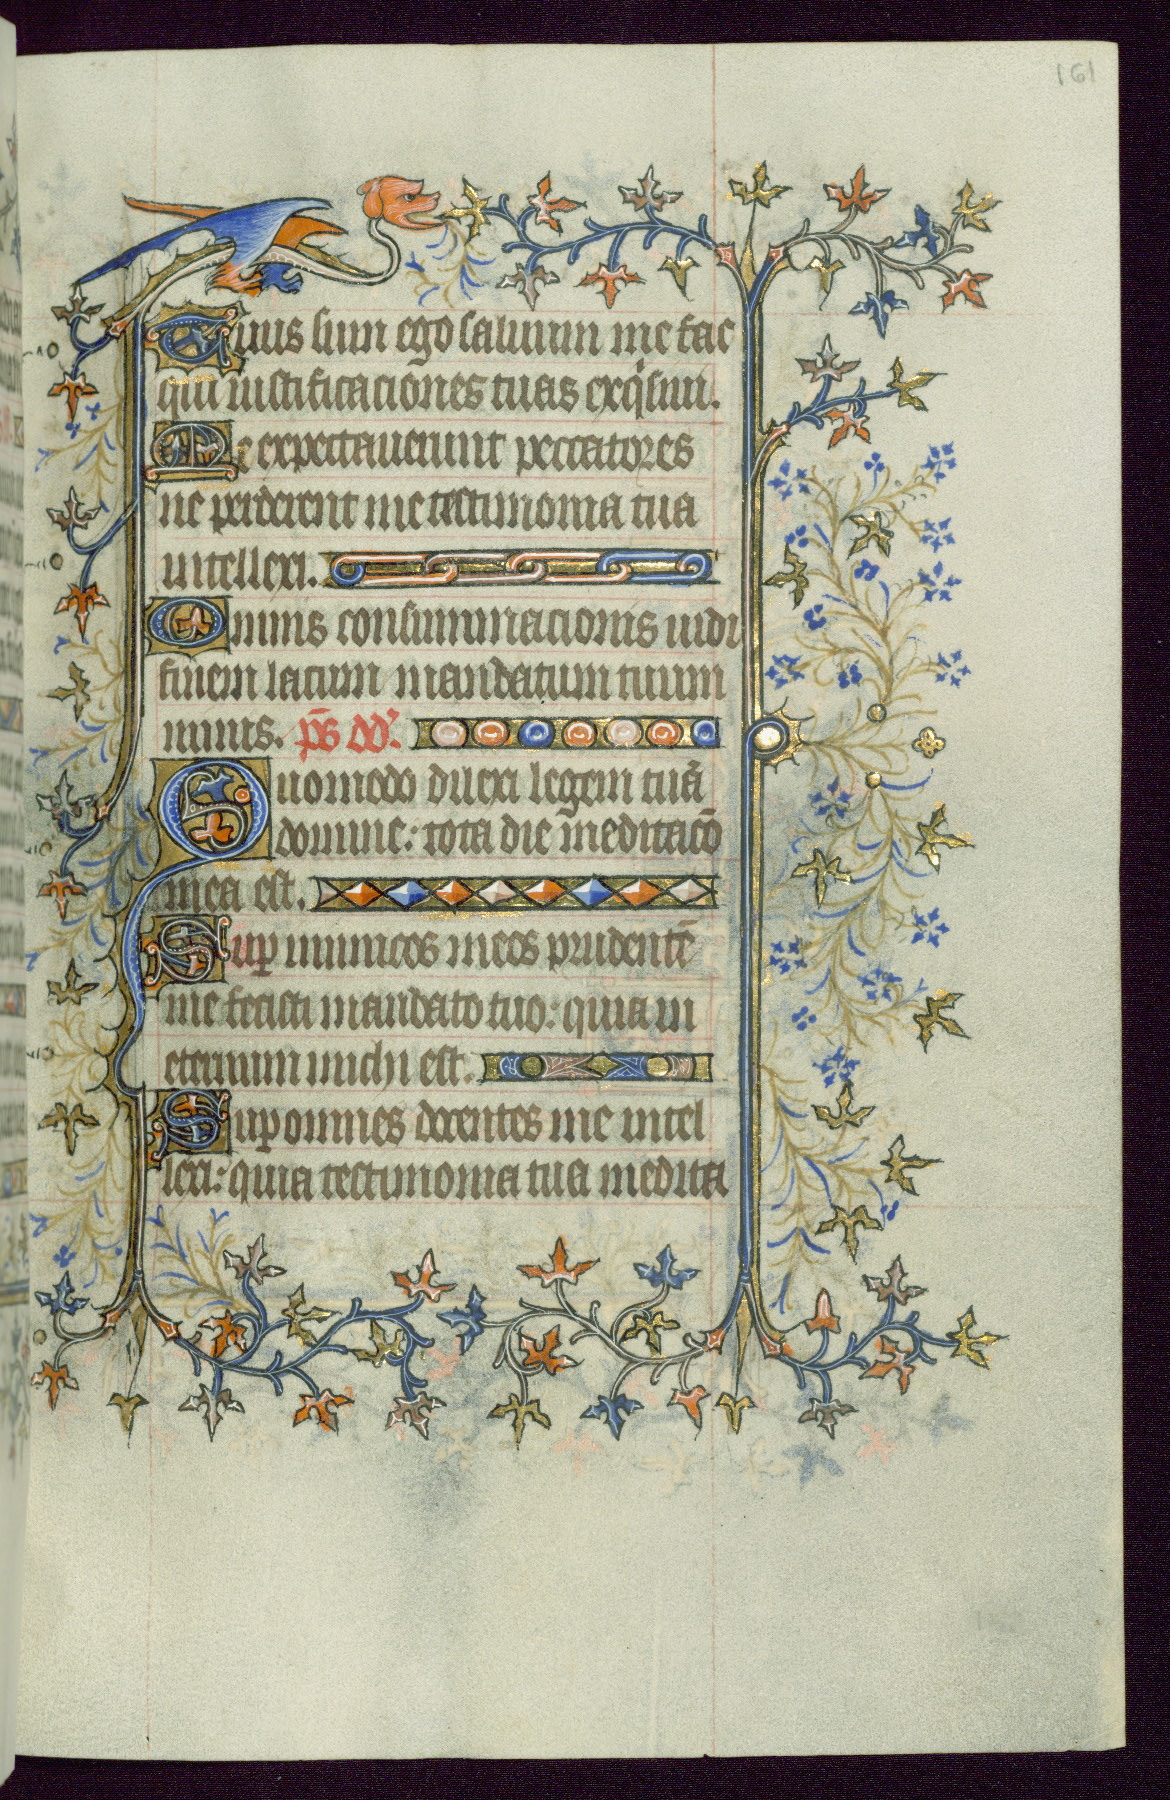 161
Tuus sum ego saluum me fac
qm̄ iustificaciones tuas exq̇siui.
Me expectauerunt peccatores
ut perderent me testimonia tua
intellexi.
Omnis consummacionis uidi
finem latum mandatum tuum
nimis. ps̄ dd'.
Quomodo dilexi legem tuā
domine: tota die meditacō
mea est.
Sup inimicos meos prudentē
me fecisti mandato tuo: quia in
eternum michi est.
Sup omnes docentes me intel
lexi: quia testimonia tua medita